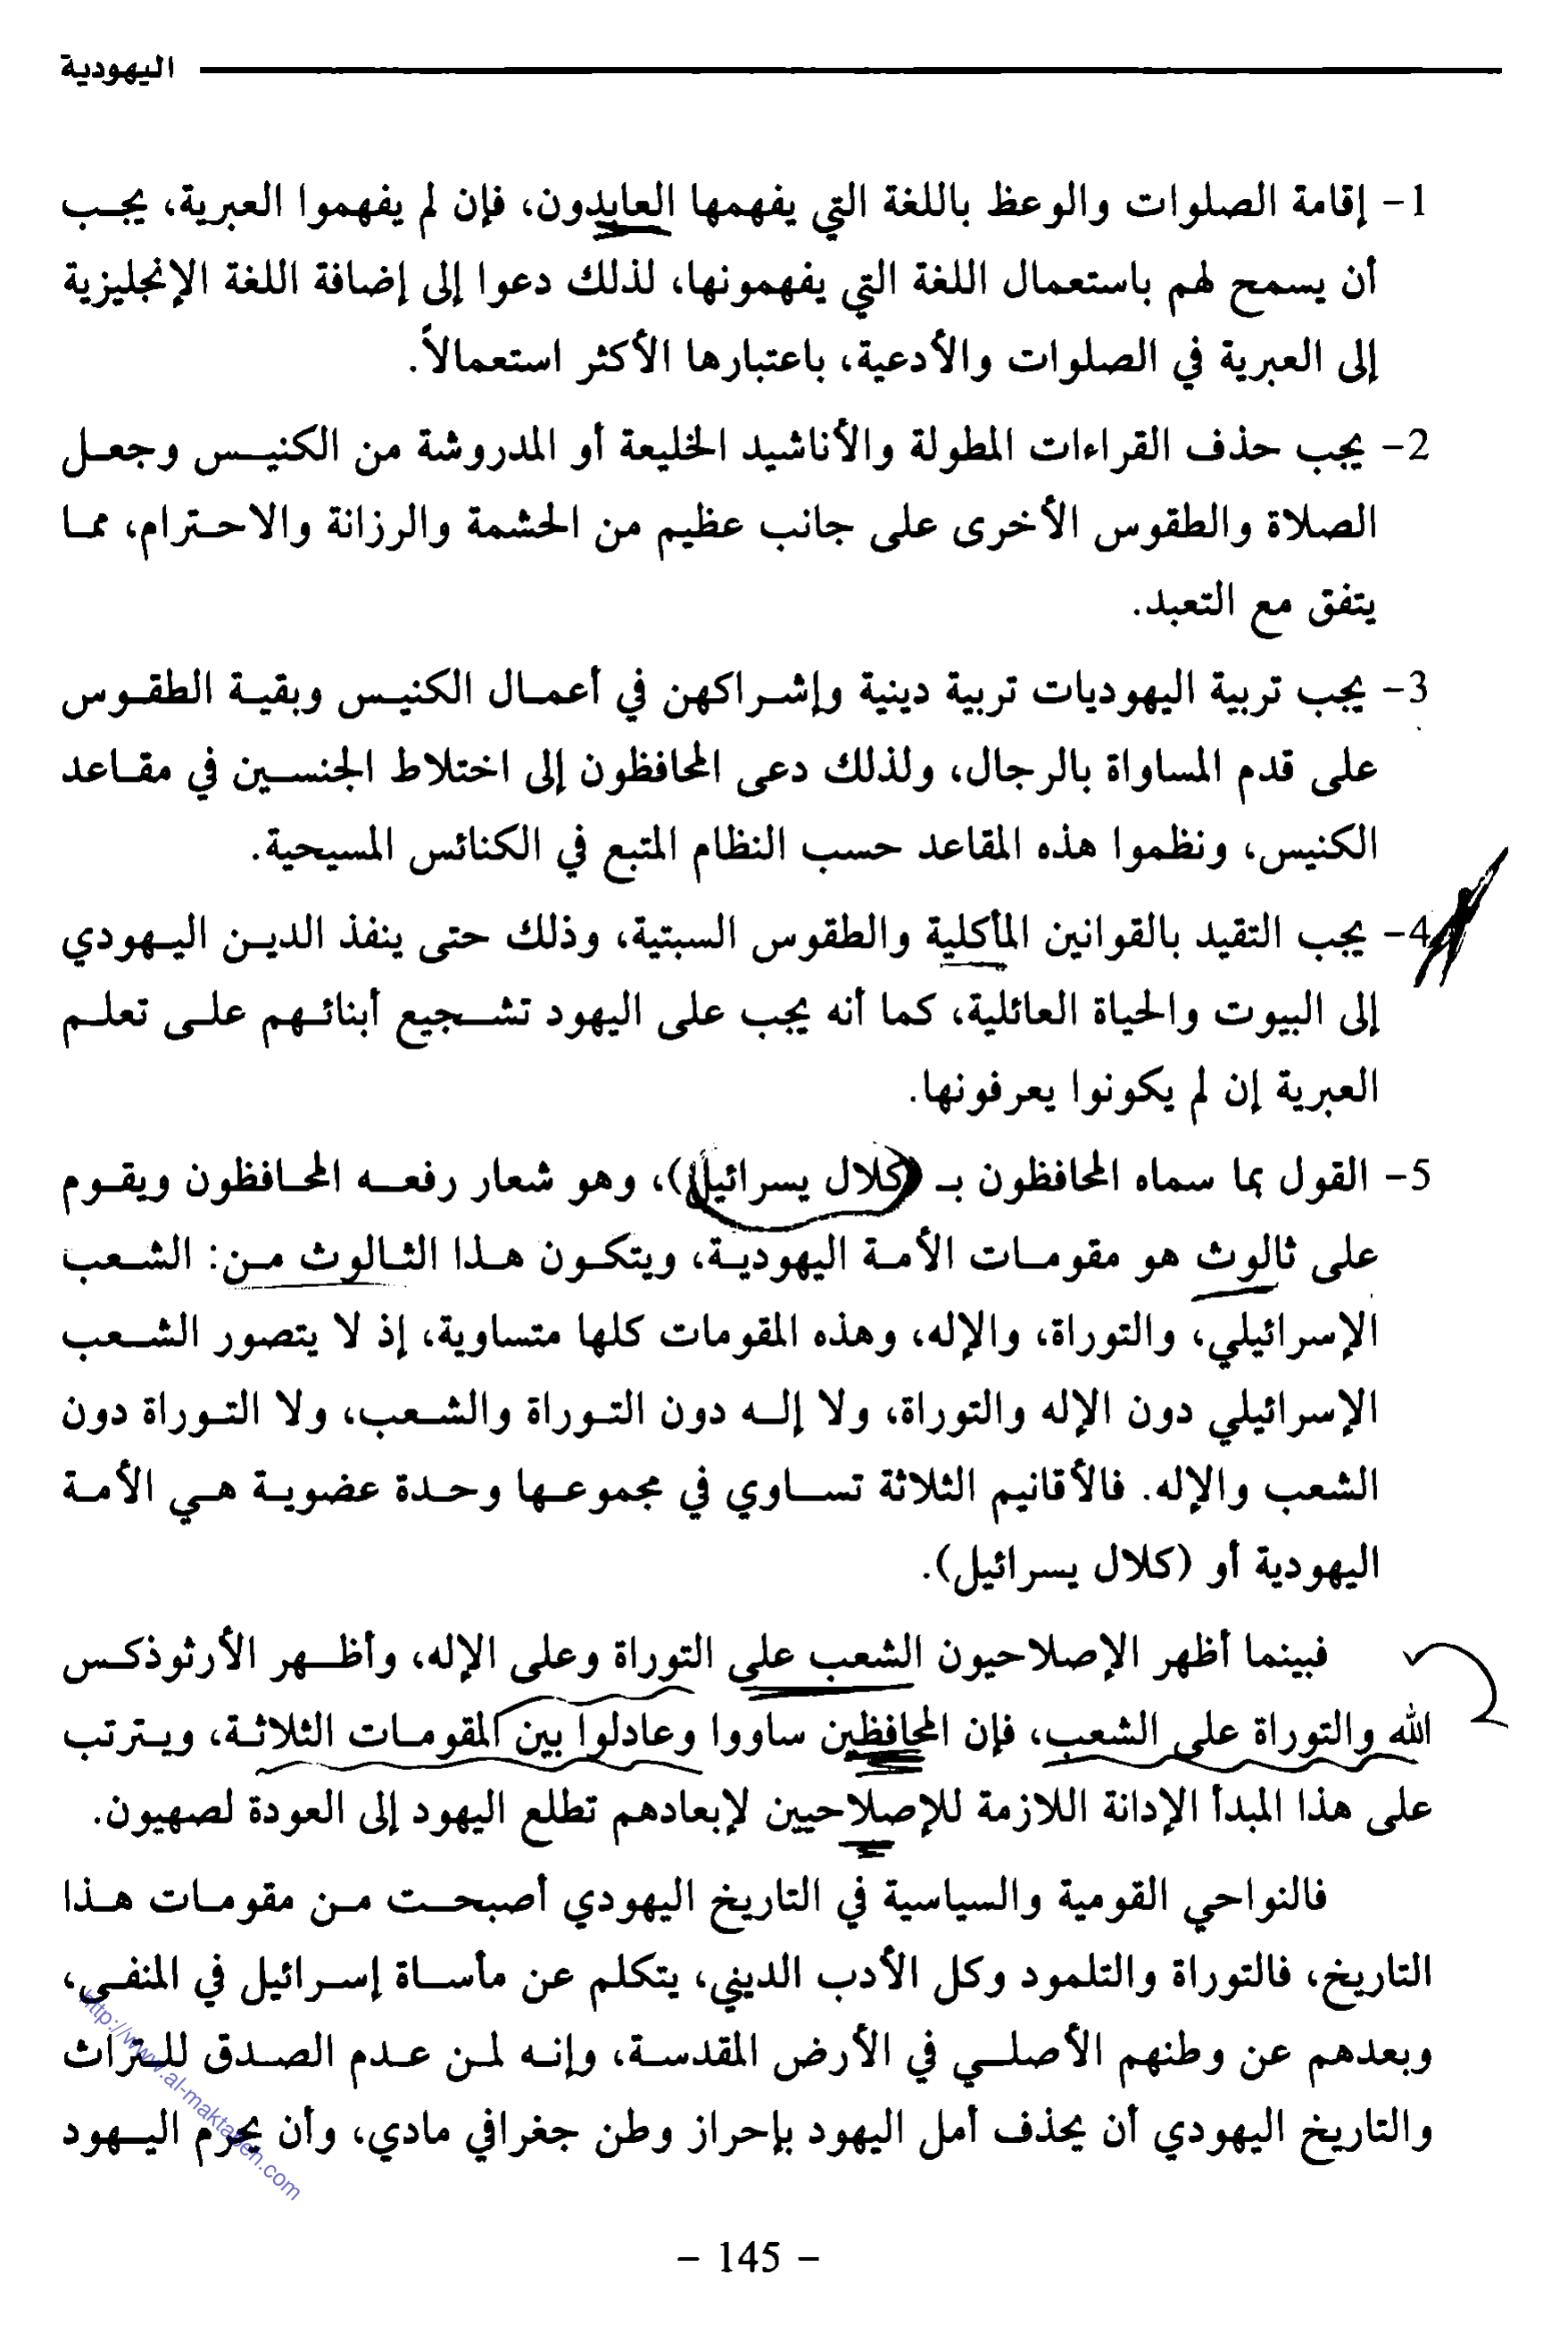 اليهودية
1- إقامة الصلوات والوعظ باللغة التي يفهمها العابدون، فإن لم يفهموا العبرية، يجب
أن يسمح لهم باستعمال اللغة التي يفهمونها، لذلك دعوا إلى إضافة اللغة الإنجليزية
إلى العبرية في الصلوات والأدعية، باعتبارها الأكثر استعمالاً.
2- يجب حذف القراءات المطولة والأناشيد الخليعة أو المدروشة من الكنيس وجعل
الصلاة والطقوس الأخرى على جانب عظيم من الحشمة والرزانة والاحترام، مما
يتفق مع التعبد.
3- يجب تربية اليهوديات تربية دينية وإشراكهن في أعمال الكنيس وبقية الطقوس
على قدم المساواة بالرجال، ولذلك دعى المحافظون إلى اختلاط الجنسين في مقاعد
الكنيس، ونظموا هذه المقاعد حسب النظام المتبع في الكنائس المسيحية.
4- يجب التقيد بالقوانين المأكلية والطقوس السبتية، وذلك حتى ينفذ الدين اليهودي
إلى البيوت والحياة العائلية، كما أنه يجب على اليهود تشجيع أبنائهم على تعلم
العبرية إن لم يكونوا يعرفونها.
5- القول بما سماه المحافظون بـ (كلال يسرائيل)، وهو شعار رفعه المحافظون ويقوم
على ثالوث هو مقومات الأمة اليهودية، ويتكون هذا الثالوث من: الشعب
الإسرائيلي، والتوراة، والإله، وهذه المقومات كلها متساوية، إذ لا يتصور الشعب
الإسرائيلي دون الإله والتوراة، ولا إله دون التوراة والشعب، ولا التوراة دون
الشعب والإله. فالأقانيم الثلاثة تساوي في مجموعها وحدة عضوية هي الأمة
اليهودية أو (كلال يسرائيل).
فبينما أظهر الإصلاحيون الشعب على التوراة وعلى الإله، وأظهر الأرثوذكس
الله والتوراة على الشعب، فإن المحافظين ساووا وعادلوا بين المقومات الثلاثة، ويترتب
على هذا المبدأ الإدانة اللازمة للإصلاحيين لإبعادهم تطلع اليهود إلى العودة لصهيون.
فالنواحي القومية والسياسية في التاريخ اليهودي أصبحت من مقومات هذا
التاريخ، فالتوراة والتلمود وكل الأدب الديني، يتكلم عن مأساة إسرائيل في المنفى،
وبعدهم عن وطنهم الأصلي في الأرض المقدسة، وإنه لمن عدم الصدق للتراث
والتاريخ اليهودي أن يحذف أمل اليهود بإحراز وطن جغرافي مادي، وأن يحرم اليهود
http://www.al-maktabeh.com
- 145 -